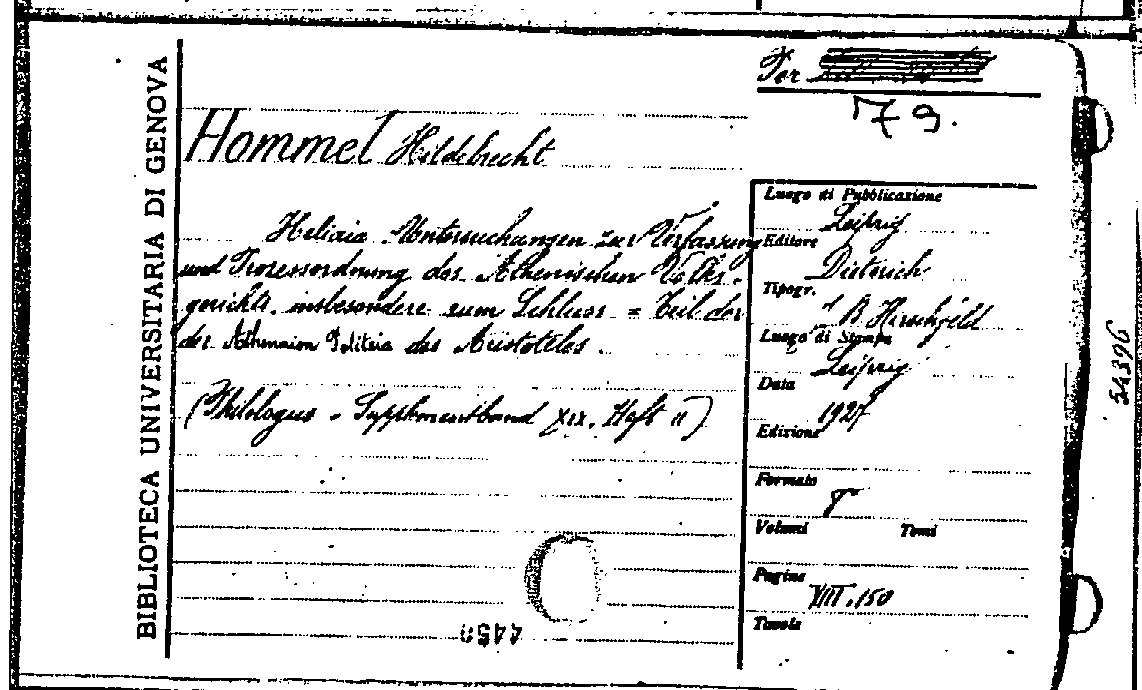 BIBLIOTECA UNIVERSITARIA DI GENOVA
Per
79.
Hommel Hildebrecht
Heliaia. Untersuchungen zur Verfassung
und Prozessordnung des Athenischen Volks-
gerichts, insbesondere zum Schluss = Teil der
der Athenaion Politeia des Aristoteles.
(Philologus - Supplementband XIX. Heft II)
Luogo di Pubblicazione
Leipzig
Editore
Dieterich
Tipogr.
B Hirschfeld
Luogo di Stampa
Leipzig
Data
1927
Edizione
Formato
8°
Volumi Tomi
Pagine
VIII.150
Tavole
54396